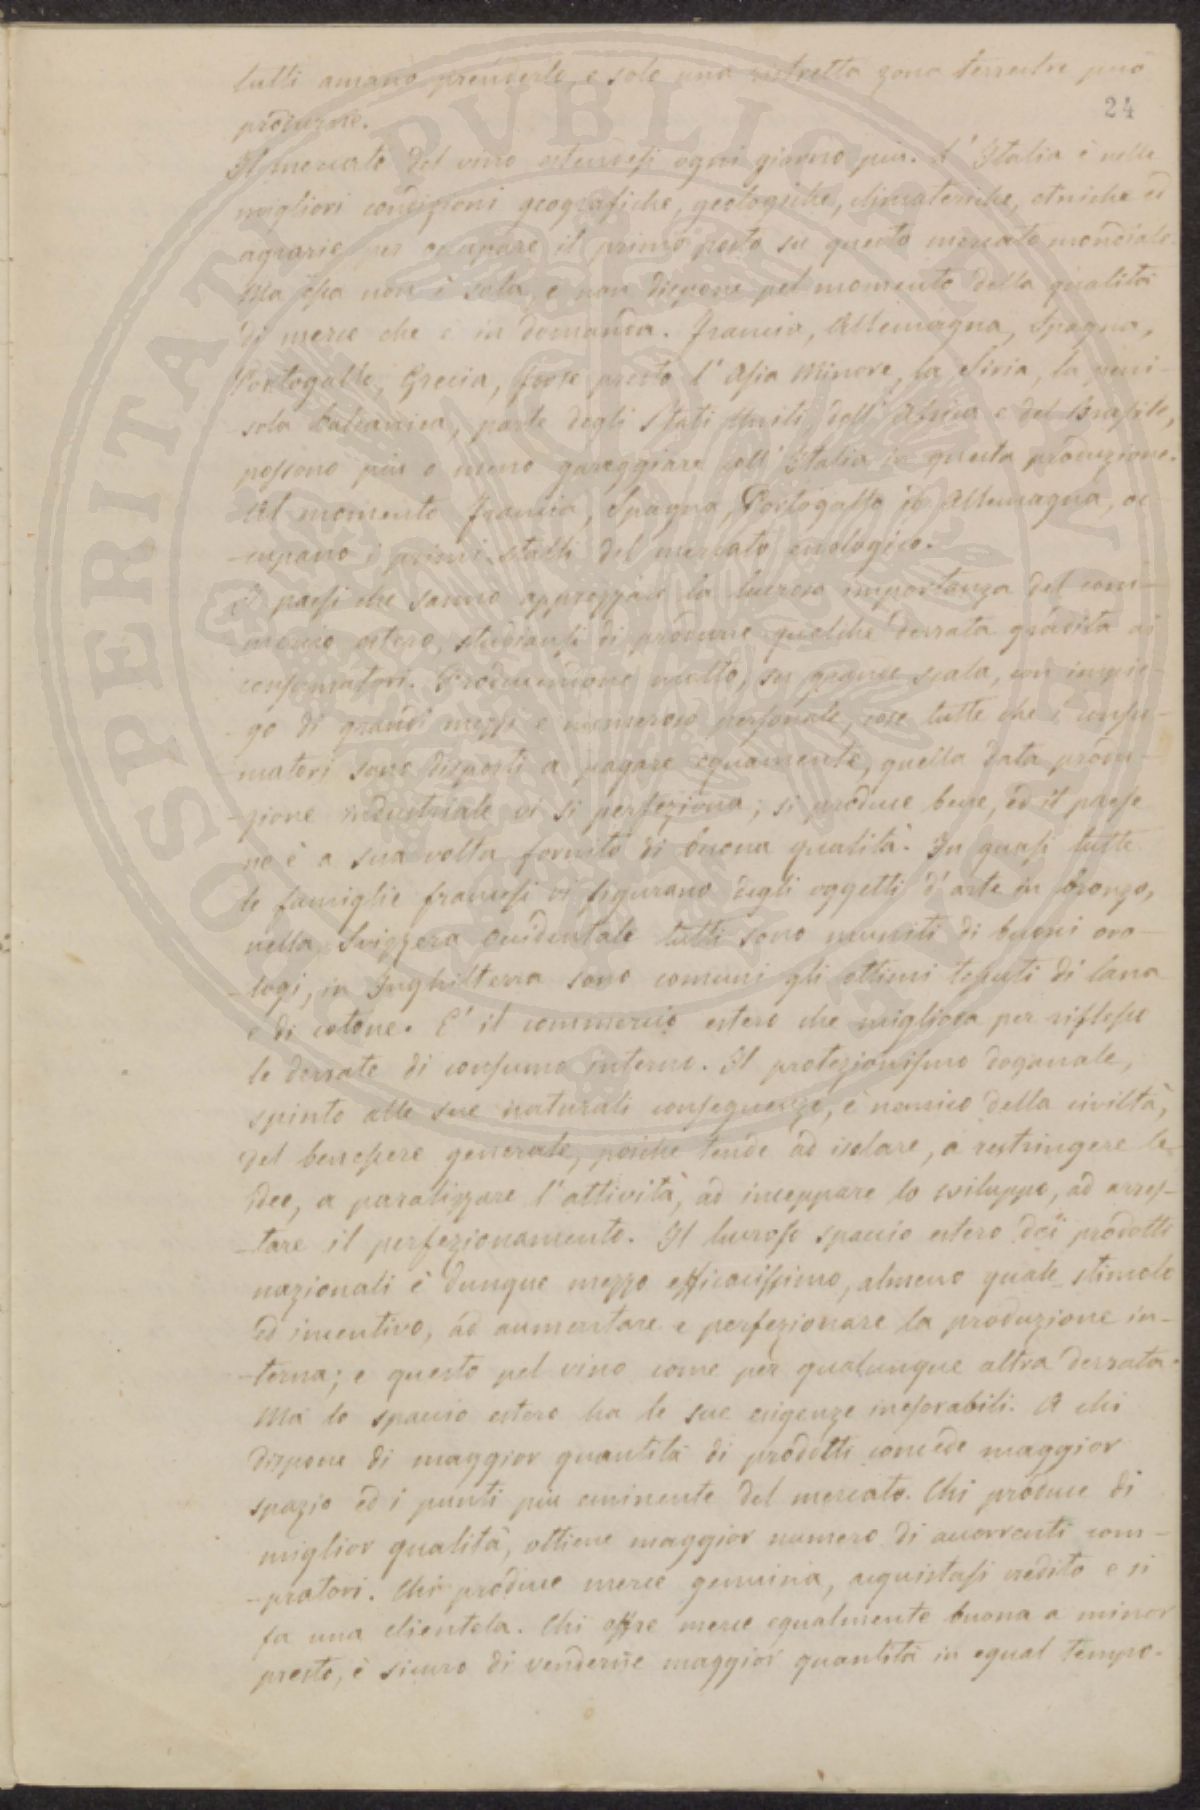 tutti amano prenderlo, e solo una ristretta zona terrestre può
24
produrne.
Il mercato del vino estendesi ogni giorno più. L'Italia è nelle
migliori condizioni geografiche, geologiche, climateriche, etniche ed
agrarie per occupare il primo posto su questo mercato mondiale.
Ma essa non è sola, e non dispone pel momento della qualità
di merce che è in domanda. Francia, Allemagna, Spagna,
Portogallo, Grecia, forse presto l'Asia Minore, la Siria, la peni-
sola Balcanica, parte degli Stati Uniti, dell'Africa e del Brasile,
possono più o meno gareggiare coll'Italia in questa produzione.
Al momento Francia, Spagna, Portogallo ed Allemagna, oc-
-cupano i primi stalli del mercato enologico.
I paesi che sanno apprezzare la lucrosa importanza del com-
-mercio estero, studiansi di produrre qualche derrata gradita ai
consumatori. Producendone molto, su grande scala, con impie-
-go di grandi mezzi e numeroso personale, cose tutte che i consu-
-matori sono disposti a pagare equamente, quella data produ-
-zione industriale vi si perfeziona; si produce bene, ed il paese
ne è a sua volta fornito di buona qualità. In quasi tutte
le famiglie francesi vi figurano degli oggetti d'arte in bronzo,
nella Svizzera occidentale tutti sono muniti di buoni oro-
-logi, in Inghilterra sono comuni gli ottimi tessuti di lana
e di cotone. E' il commercio estero che migliora per riflesso
le derrate di consumo interno. Il protezionismo doganale,
spinto alle sue naturali conseguenze, è nemico della civiltà,
del benessere generale, poiche tende ad isolare, a restringere le
idee, a paralizzare l'attività, ad inceppare lo sviluppo, ad arres-
-tare il perfezionamento. Il lucroso spaccio estero dei prodotti
nazionali è dunque mezzo efficacissimo, almeno quale stimolo
ed incentivo, ad aumentare e perfezionare la produzione in-
-terna; e questo pel vino come per qualunque altra derrata.
Ma lo spaccio estero ha le sue esigenze inesorabili. A chi
dispone di maggior quantità di prodotti concede maggior
spazio ed i punti più eminente del mercato. Chi produce di
miglior qualità, ottiene maggior numero di accorrenti com-
-pratori. Chi produce merce genuina, acquistasi credito e si
fa una clientela. Chi offre merce egualmente buona a minor
presto, è sicuro di venderne maggior quantità in egual tempo.
PROSPERITATI PVBLICAE